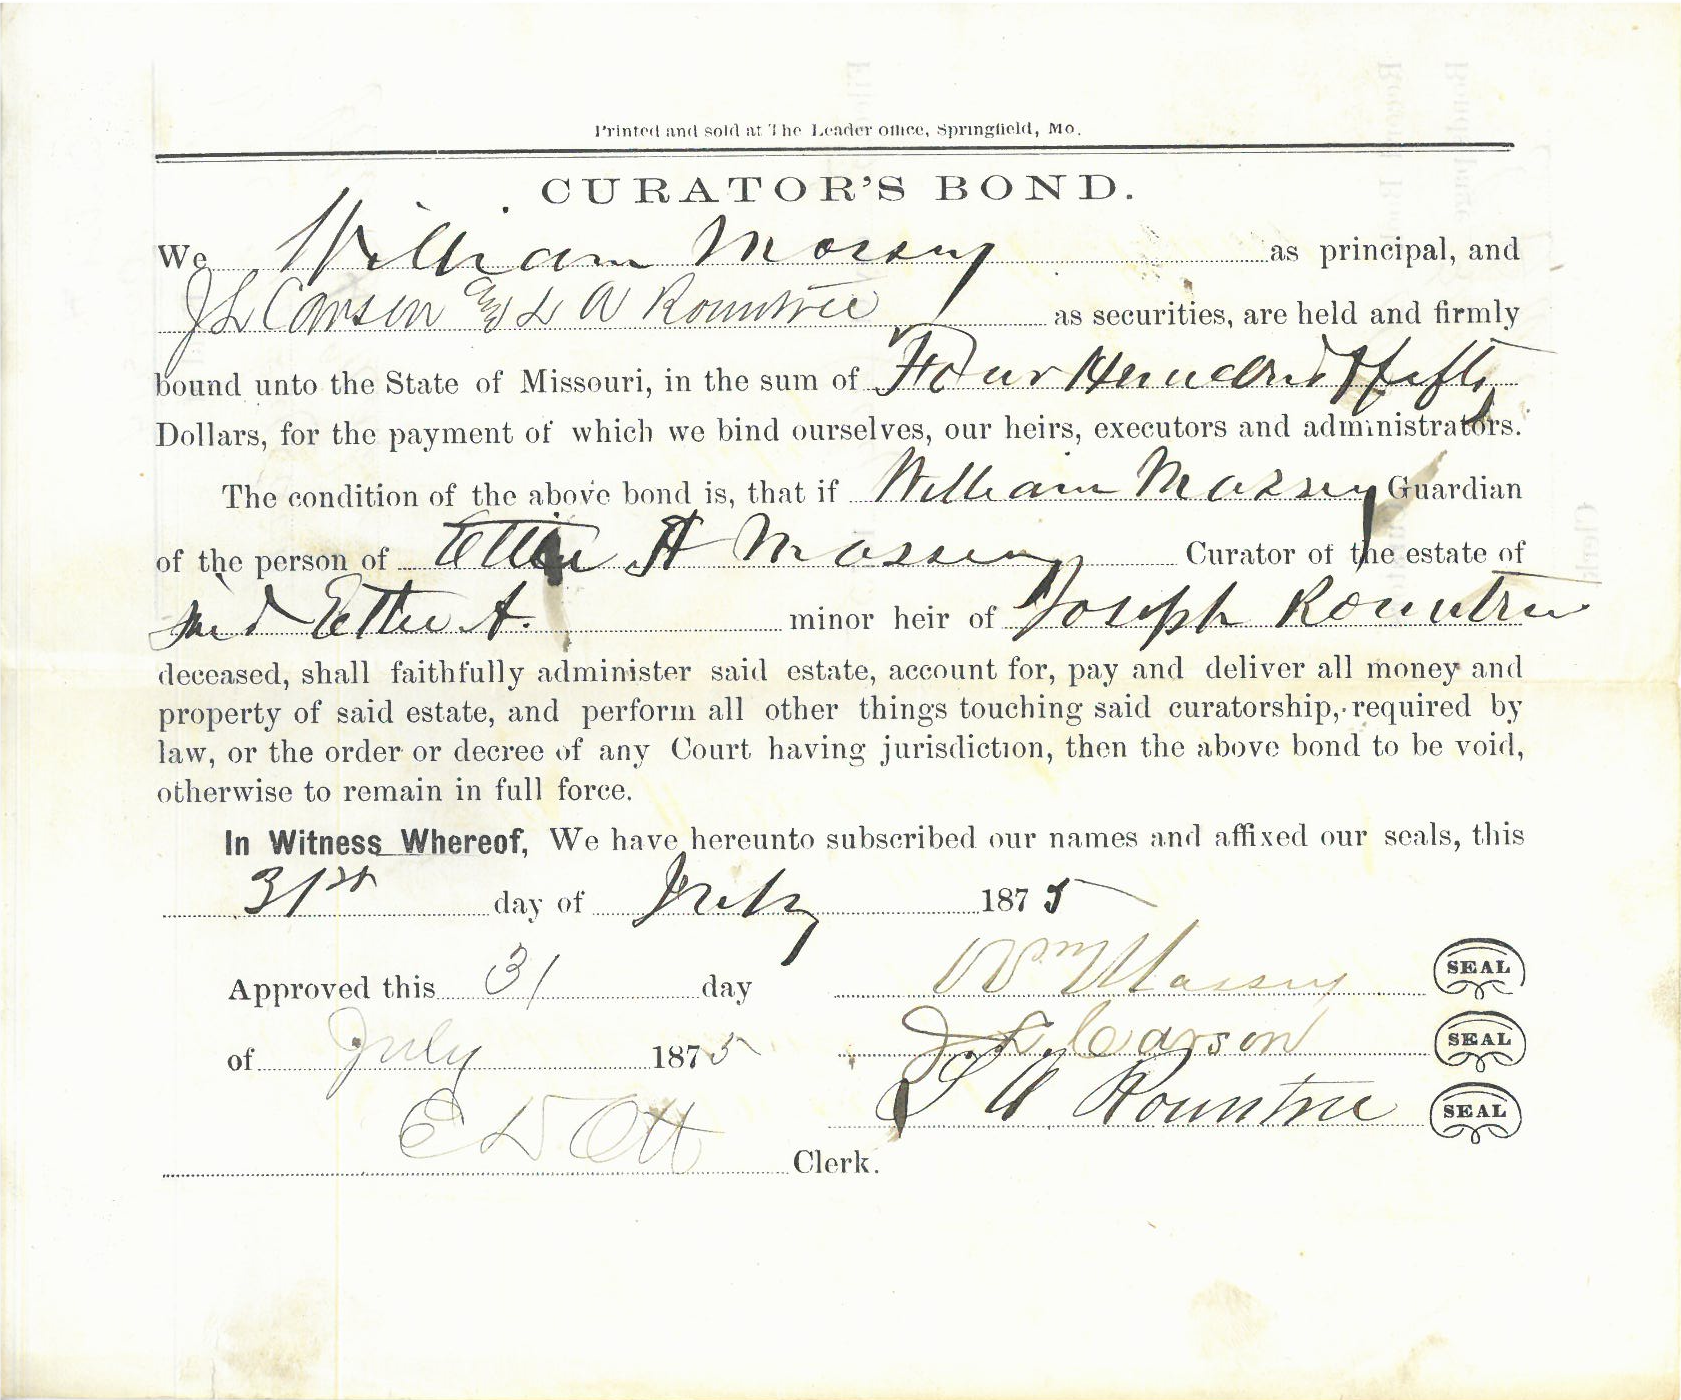 Printed and sold at The Leader office, Springfield, Mo.
CURATOR'S BOND.
We William Massey as principal, and
J L Carson and L A Rountree as securities, are held and firmly
bound unto the State of Missouri, in the sum of Four Hundred & fifty
Dollars, for the payment of which we bind ourselves, our heirs, executors and administrators.
The condition of the above bond is, that if William Massey Guardian
of the person of Ettie A Massey Curator of the estate of
said Ettie A. minor heir of Joseph Rountree
deceased, shall faithfully administer said estate, account for, pay and deliver all money and
property of said estate, and perform all other things touching said curatorship, required by
law, or the order or decree of any Court having jurisdiction, then the above bond to be void,
otherwise to remain in full force.
In Witness Whereof, We have hereunto subscribed our names and affixed our seals, this
31st day of July 1875
Approved this 31 day
of July 1875
E D Ott Clerk.
Wm Massey SEAL
J L Carson SEAL
L A Rountree SEAL